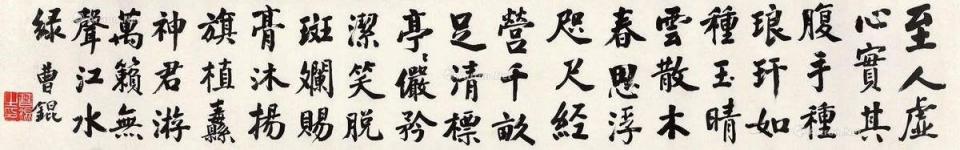 至人虛
心實其
腹手種
琅玕如
種玉晴
雲散木
春思浮
咫尺經
營千畝
足清標
亭〻儼矜
潔笑脫
斑斕賜
膏沐揚
旗植纛
神君游
萬籟無
聲江水
綠
曹錕